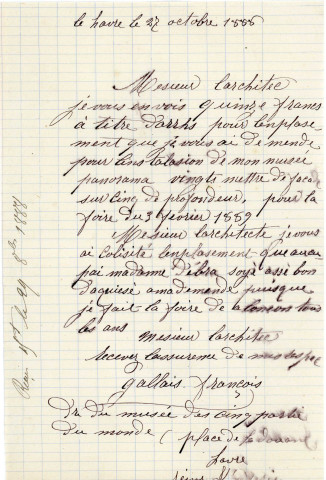 le havre le 27 octobre 1888
Mesieur larchitec
je vous envois quinze francs
à titre darrhs pour lenplase
ment que je vous ai demende
pour linstalasion de mon museu
panorama vingt mettre de facade
sur cinq de profondeur, pour la
foire du 3 février 1889
Mesieur larchitecte je vous
ai solisité lenplasement que aucu
pai madame
soyez assé bon
daquiessé a ma demende puisque
je fait la foire de alenson tous
les ans Mesieur larchitec
Recevez lassurence de mes respec
Gallais françois
Dr du musée des cinq partie
du monde (place de la douane
havre
Reçu 15f le 29 8bre 1888